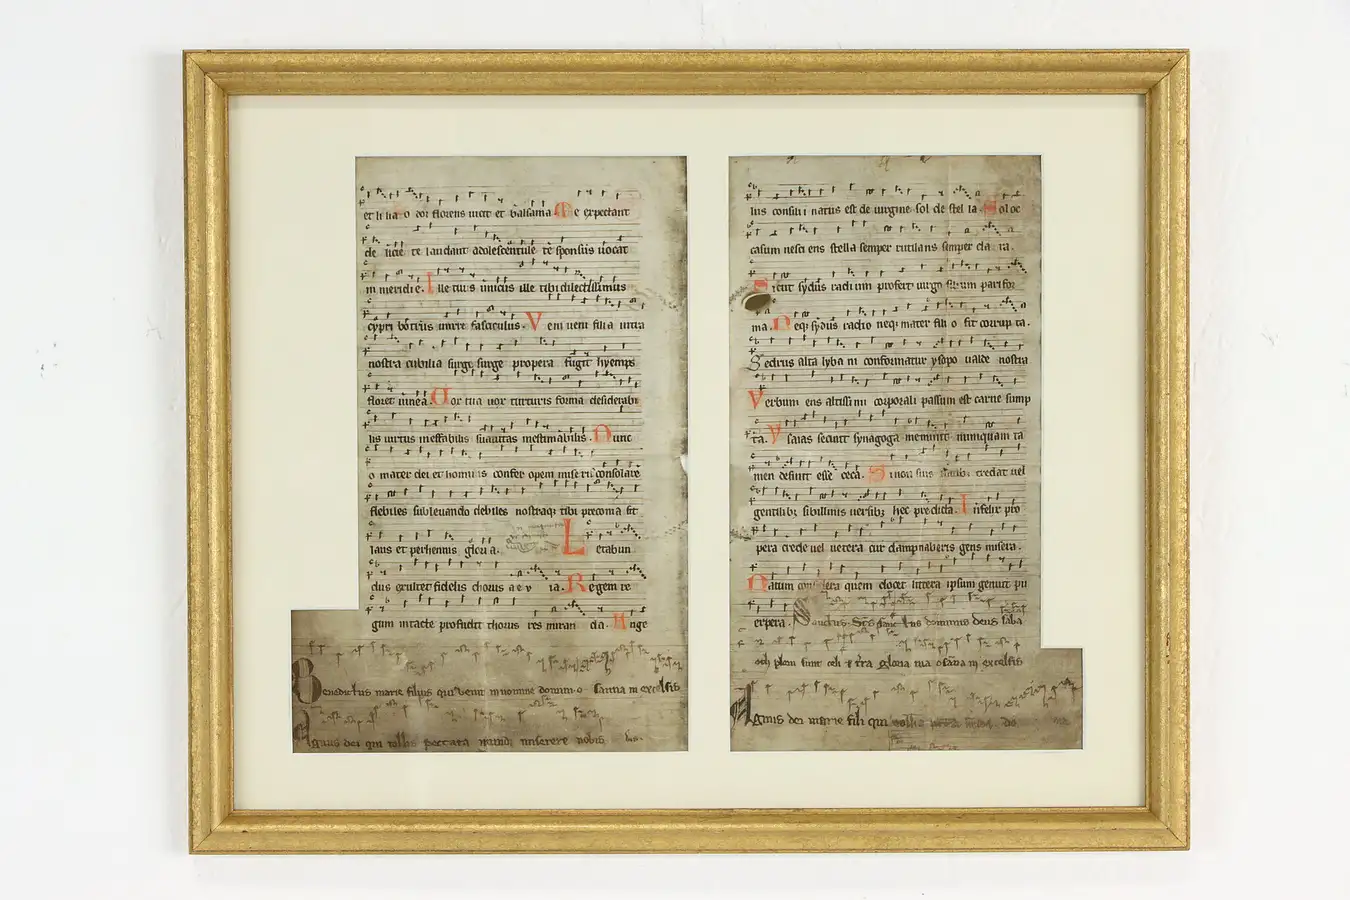 et lilia o cor florens uicit et balsama Te expectant
de licie te laudant adolescentule te sponsus uocat
in meridie. Ille tuus unicus ille tibi dilectissimus
cypri botrus mirre fasciculus. Veni ueni filia intra
nostra cubilia surge surge propera fugit hyemps
floret uinea. Vox tua uox turturis forma desiderabi
lis uirtus ineffabilis suauitas inestimabilis. Nunc
o mater dei et hominis confer opem miseris consolare
flebiles subleuando debiles nostraque tibi preconia sit
laus et perhennis gloria. Letabun
dus exultet fidelis chorus a e v ia. Regem re
gum intacte profudit thorus res miran da. Ange
Benedictus marie filius qui uenit in nomine domini o sanna in excelsis
Agnus dei qui tollis peccata mundi miserere nobis
lius consili i natus est de uirgine sol de stel la. Sol oc
casum nesci ens stella semper rutilans semper cla ra.
Sicut sydus radium profert uirgo filium pari for
ma. Neq; sydus radio neq; mater fili o fit corrup ta.
Cedrus alta lyba ni conformatur ysopo ualle nostra
Verbum ens altissi mi corporali passum est carne sump
ta. Ysaias cecinit synagoga meminit numquam ta
men desinit esse ceca. Si non suis uatib; credat uel
gentilib; sibillinis uersib; hec predicta. Infelix pro
pera crede uel uetera cur dampnaberis gens misera.
Natum considera quem docet littera ipsum genuit pu
erpera. Sanctus. Scs Sanctus dominus deus saba
oth pleni sunt celi & terra gloria tua osanna in excelsis
Agnus dei marie fili qui tollis